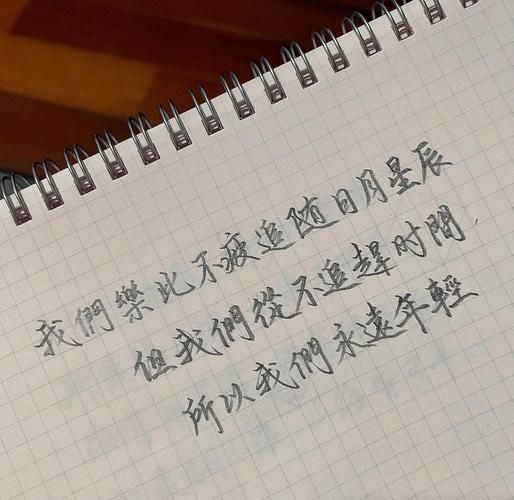 我們樂此不疲追随日月星辰
但我們從不追趕时間,
所以我們永遠年輕